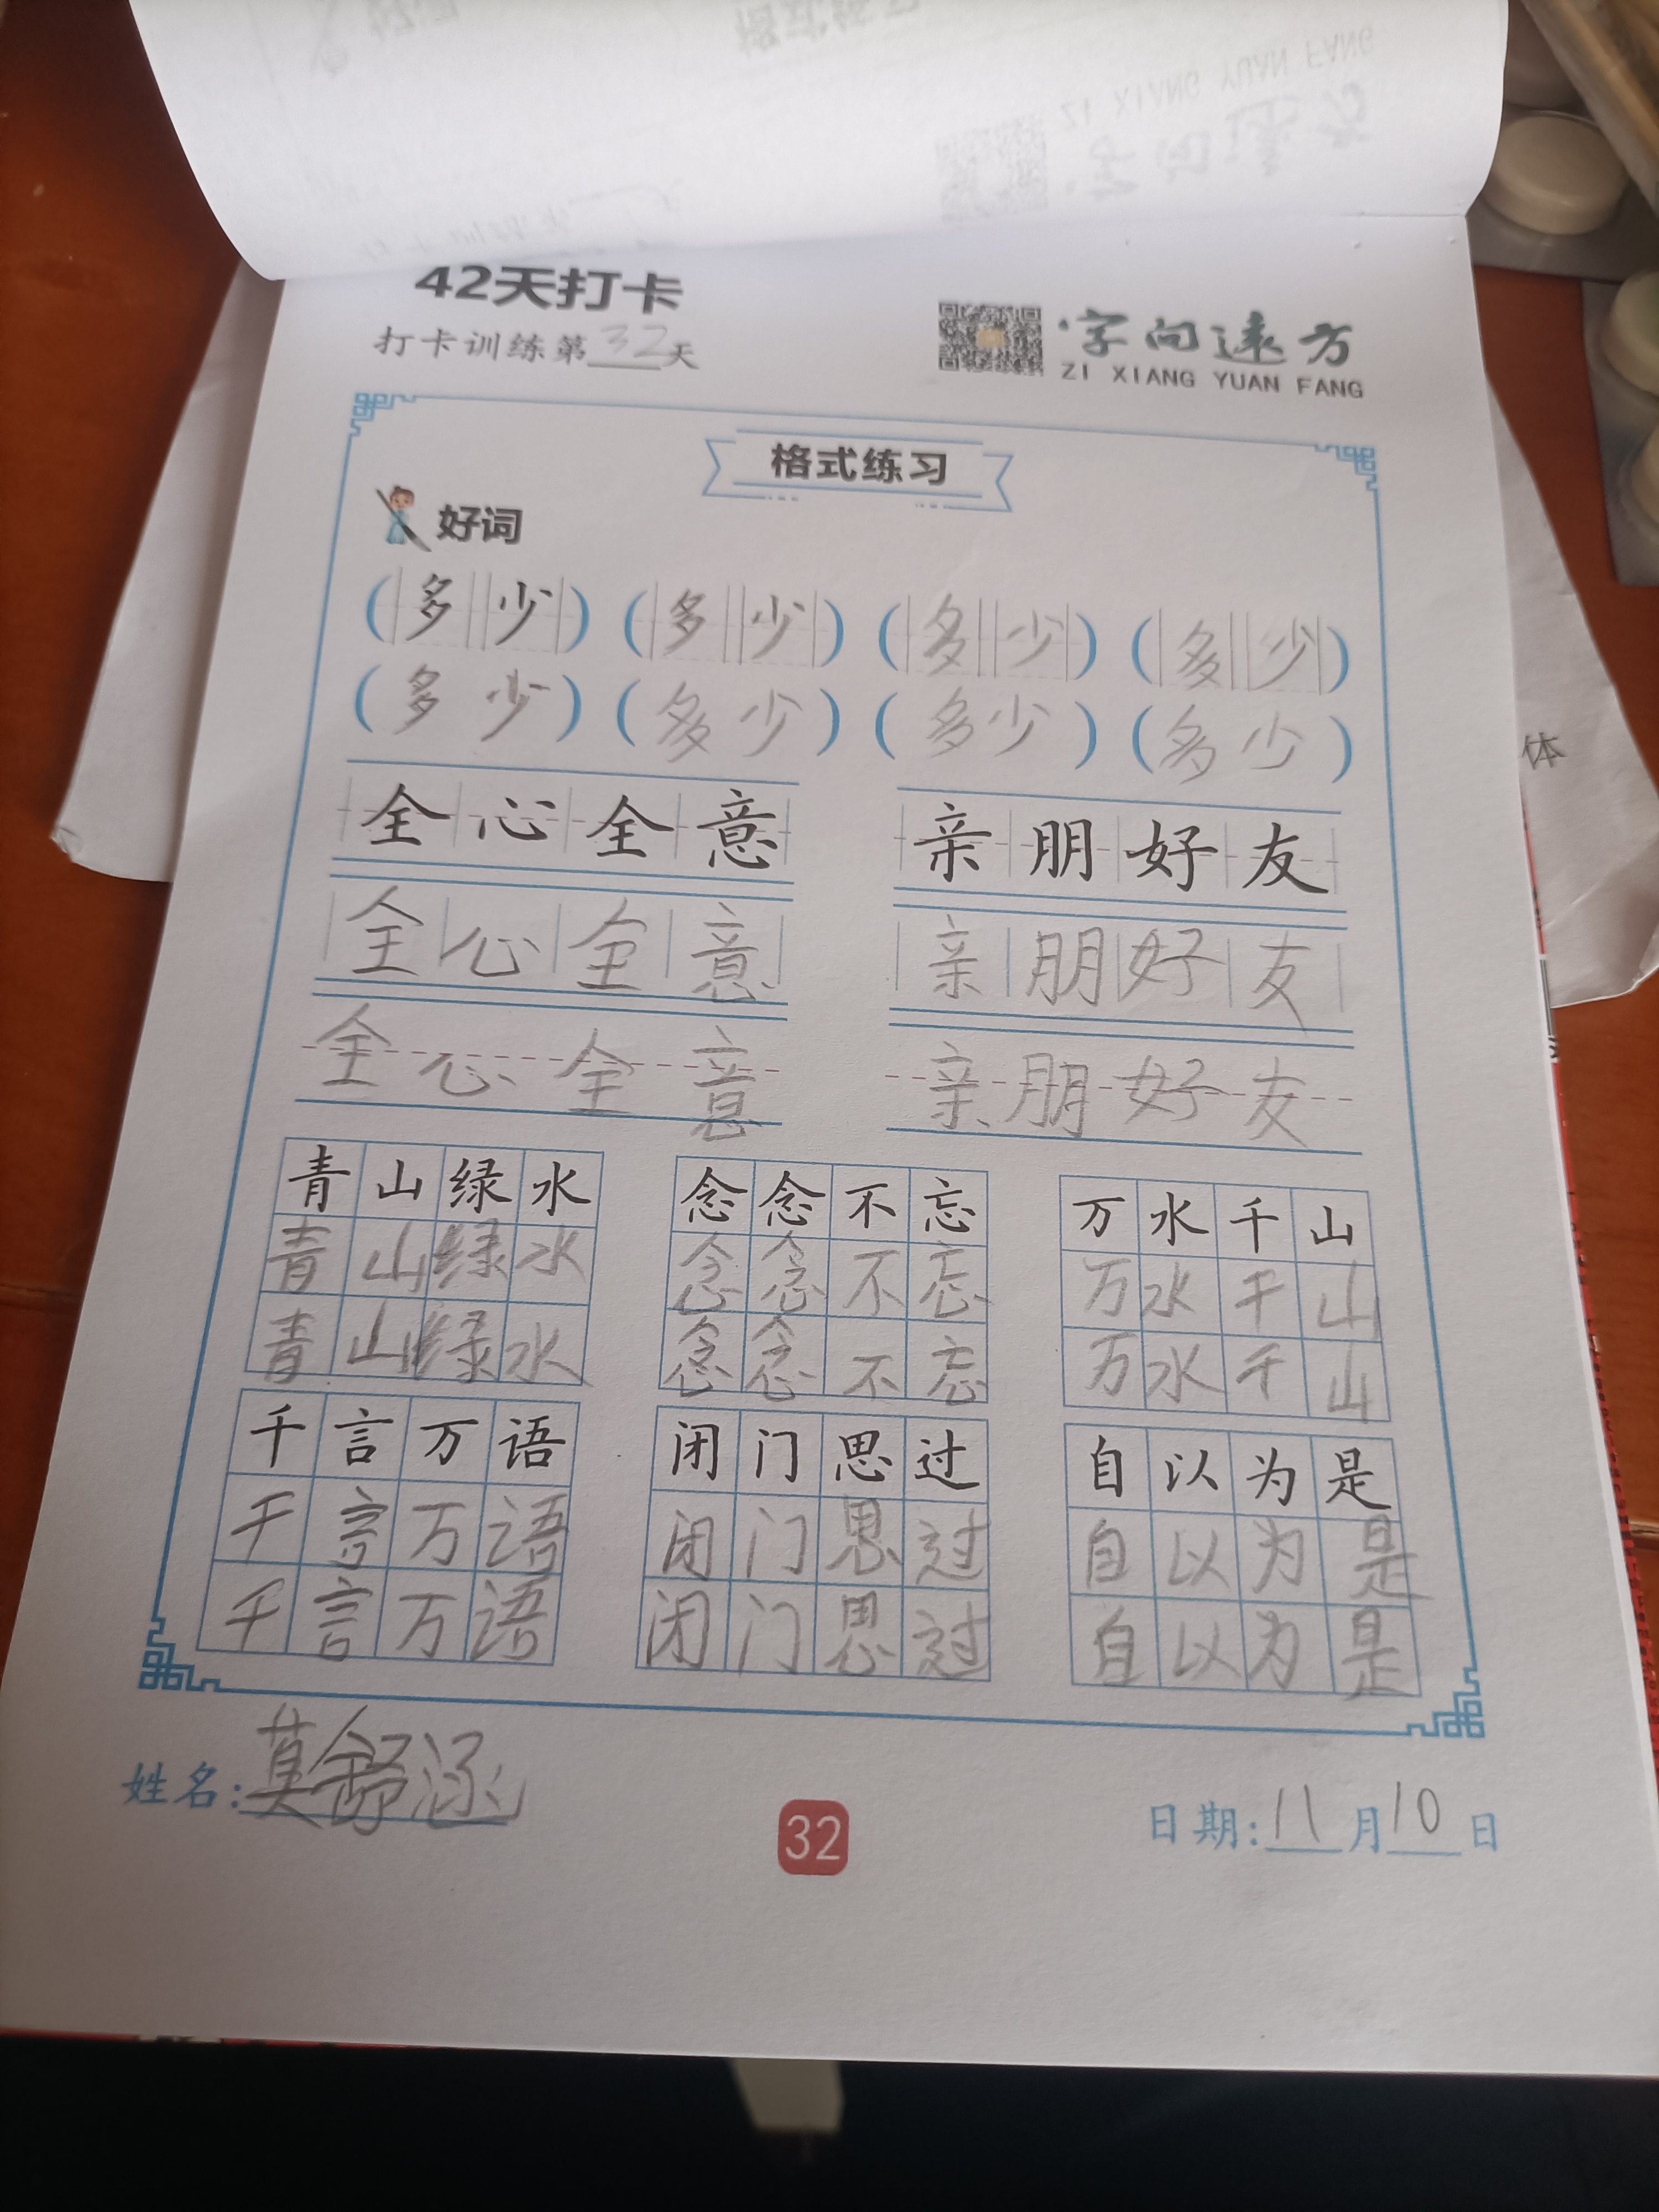 42天打卡
打卡训练第32天
字向远方
ZI XIANG YUAN FANG
格式练习
好词
(多少) (多少) (多少) (多少)
(多少) (多少) (多少) (多少)
全心全意 亲朋好友
全心全意 亲朋好友
全心全意 亲朋好友
青山绿水 念念不忘 万水千山
青山绿水 念念不忘 万水千山
青山绿水 念念不忘 万水千山
千言万语 闭门思过 自以为是
千言万语 闭门思过 自以为是
千言万语 闭门思过 自以为是
姓名:莫舒涵
32
日期:11月10日
体